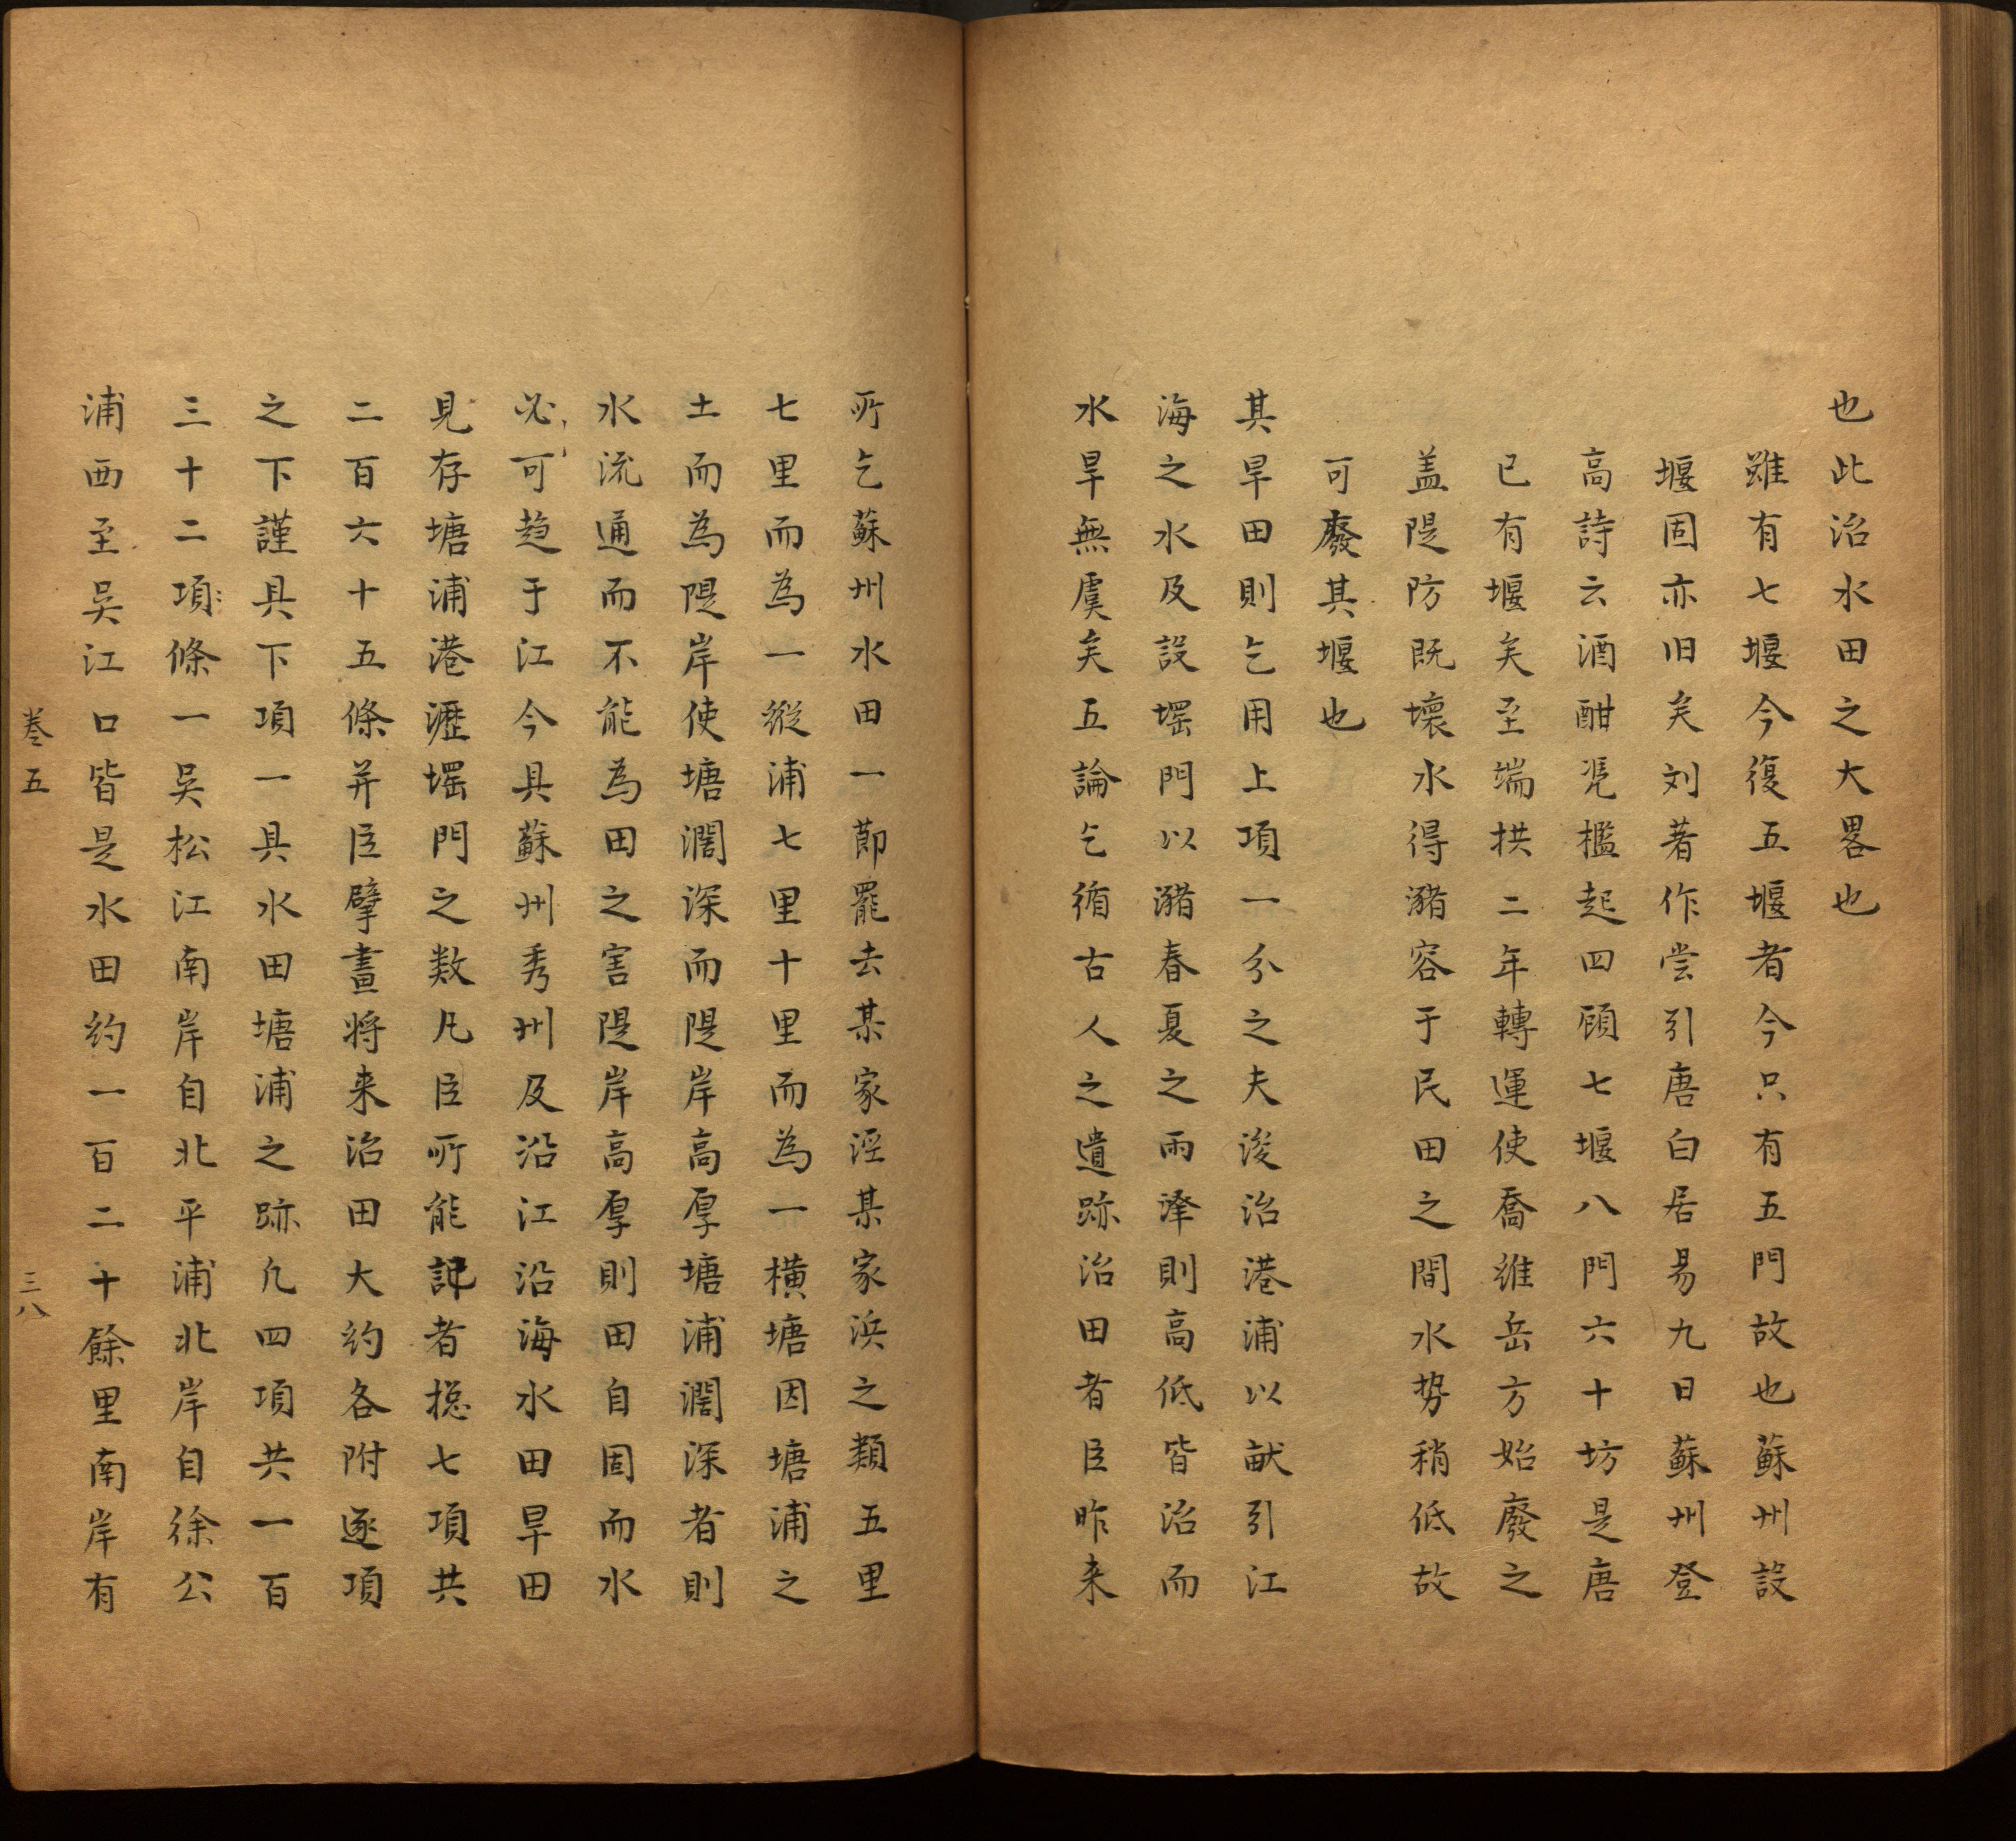 也此治水田之大畧也
雖有七堰今復五堰者今只有五門故也蘇州設
堰固亦旧矣刘著作尝引唐白居易九日蘇州登
高詩云酒酣凭檻起四顧七堰八門六十坊是唐
已有堰矣至端拱二年轉運使喬維岳方始廢之
盖隄防既壞水得瀦容于民田之間水势稍低故
可廢其堰也
其旱田則乞用上項一分之夫浚治港浦以畎引江
海之水及設堽門以瀦春夏之雨澤則高低皆治而
水旱無虞矣五論乞循古人之遺跡治田者臣昨来
所乞蘇州水田一節罷去某家涇某家浜之類五里
七里而為一縱浦七里十里而為一橫塘因塘浦之
土而為隄岸使塘濶深而隄岸高厚塘浦濶深者則
水流通而不能為田之害隄岸高厚則田自固而水
必可趋于江今具蘇州秀州及沿江沿海水田旱田
見存塘浦港瀝堽門之数凡臣所能記者揔七項共
二百六十五條并臣擘畫将来治田大約各附逐項
之下謹具下項一具水田塘浦之跡凢四項共一百
三十二項條一吳松江南岸自北平浦北岸自徐公
浦西至吳江口皆是水田約一百二十餘里南岸有
卷五
三八